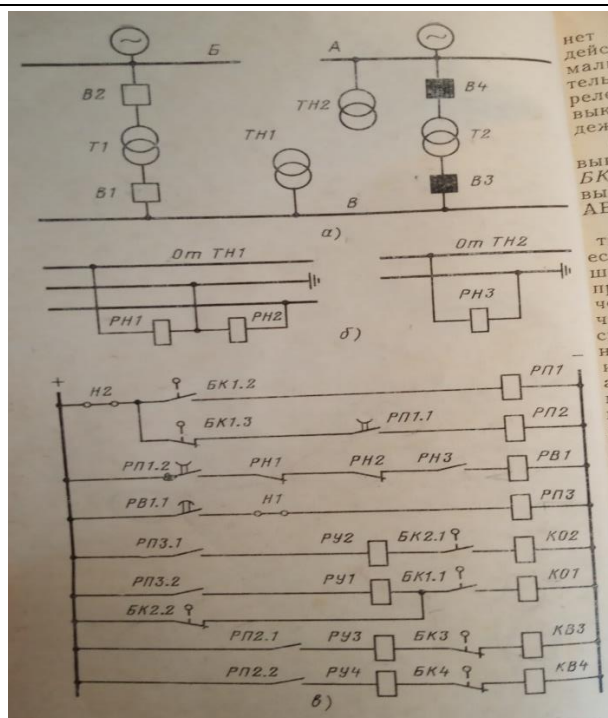 Б
А
В2
Т1
В1
ТН1
ТН2
В4
Т2
В3
В
а)
От ТН1
От ТН2
РН1
РН2
РН3
б)
+
−
Н2
БК1.2
РП1
БК1.3
РП1.1
РП2
РП1.2
РН1
РН2
РН3
РВ1
РВ1.1
Н1
РП3
РП3.1
РУ2
БК2.1
КО2
РП3.2
РУ1
БК1.1
КО1
БК2.2
РП2.1
РУ3
БК3
КВ3
РП2.2
РУ4
БК4
КВ4
в)
нет
дейс
мали
тель
реле
вык
деж
БК
АВ